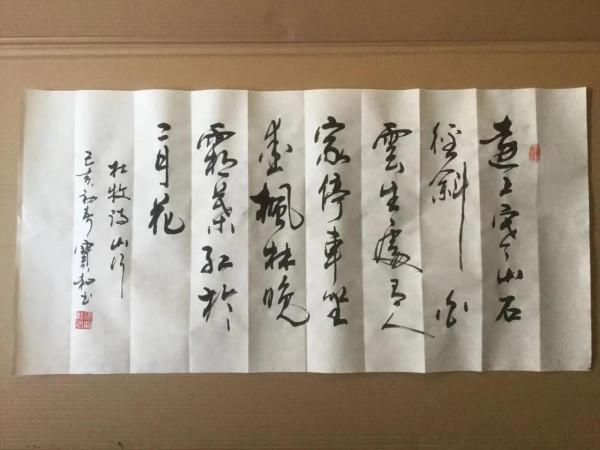 遠上寒山石
徑斜白
雲生處有人
家停車坐
愛楓林晚
霜葉紅於
二月花
杜牧詩山行
己亥初春寶书